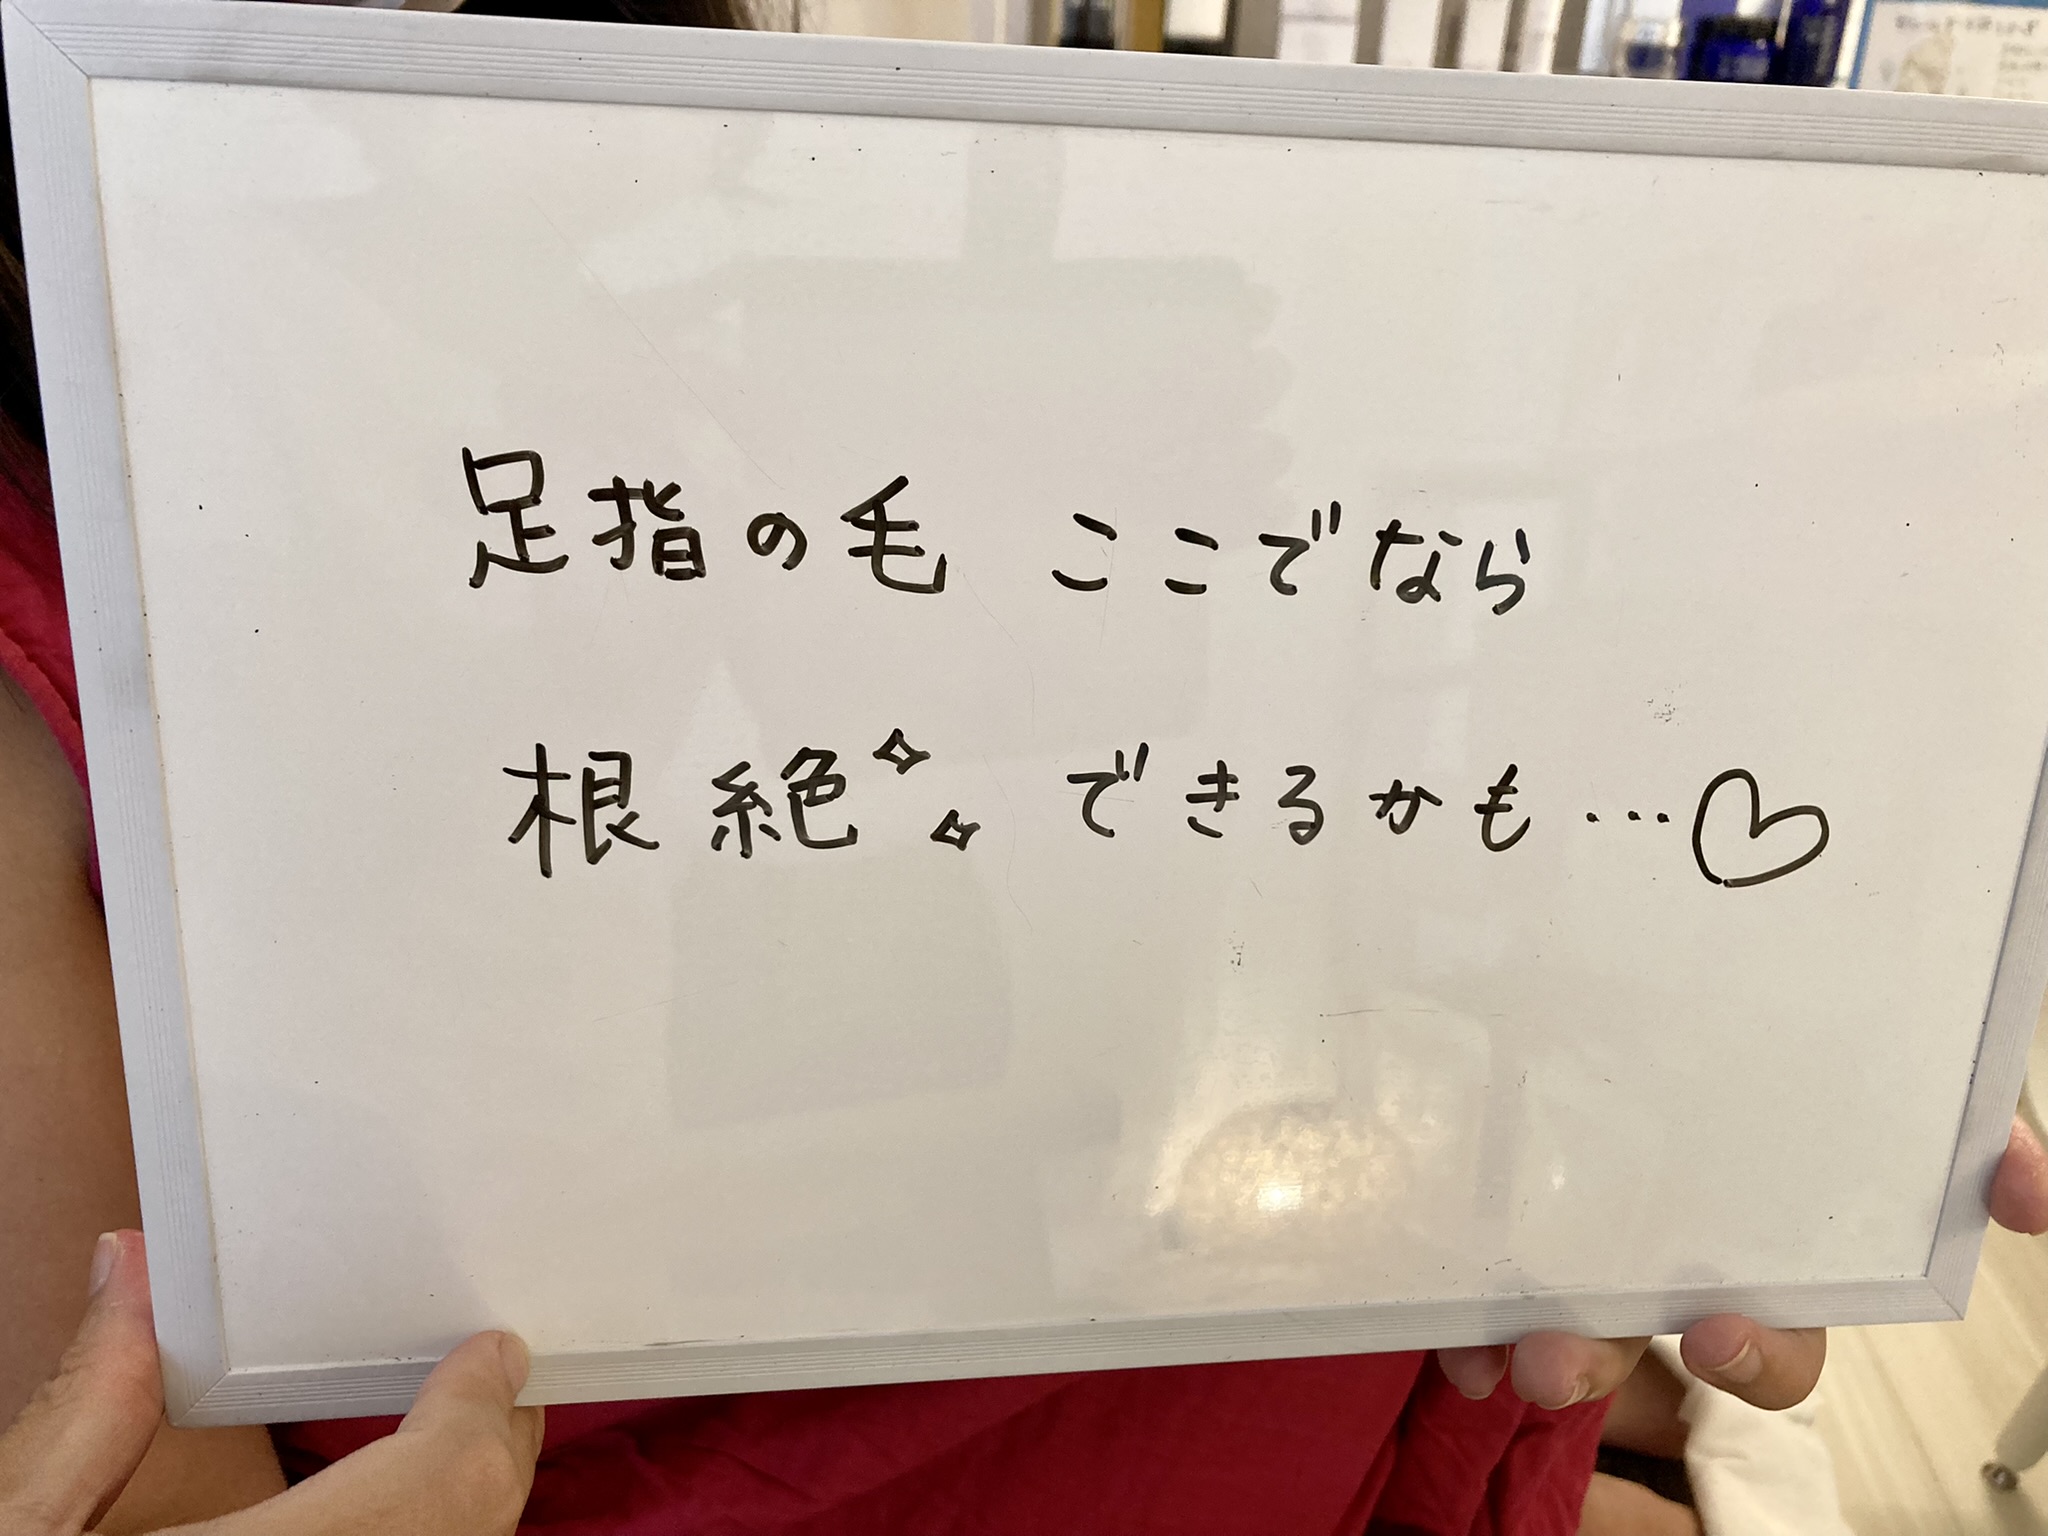 足指の毛 ここでなら
根絶✧✧できるかも…♡